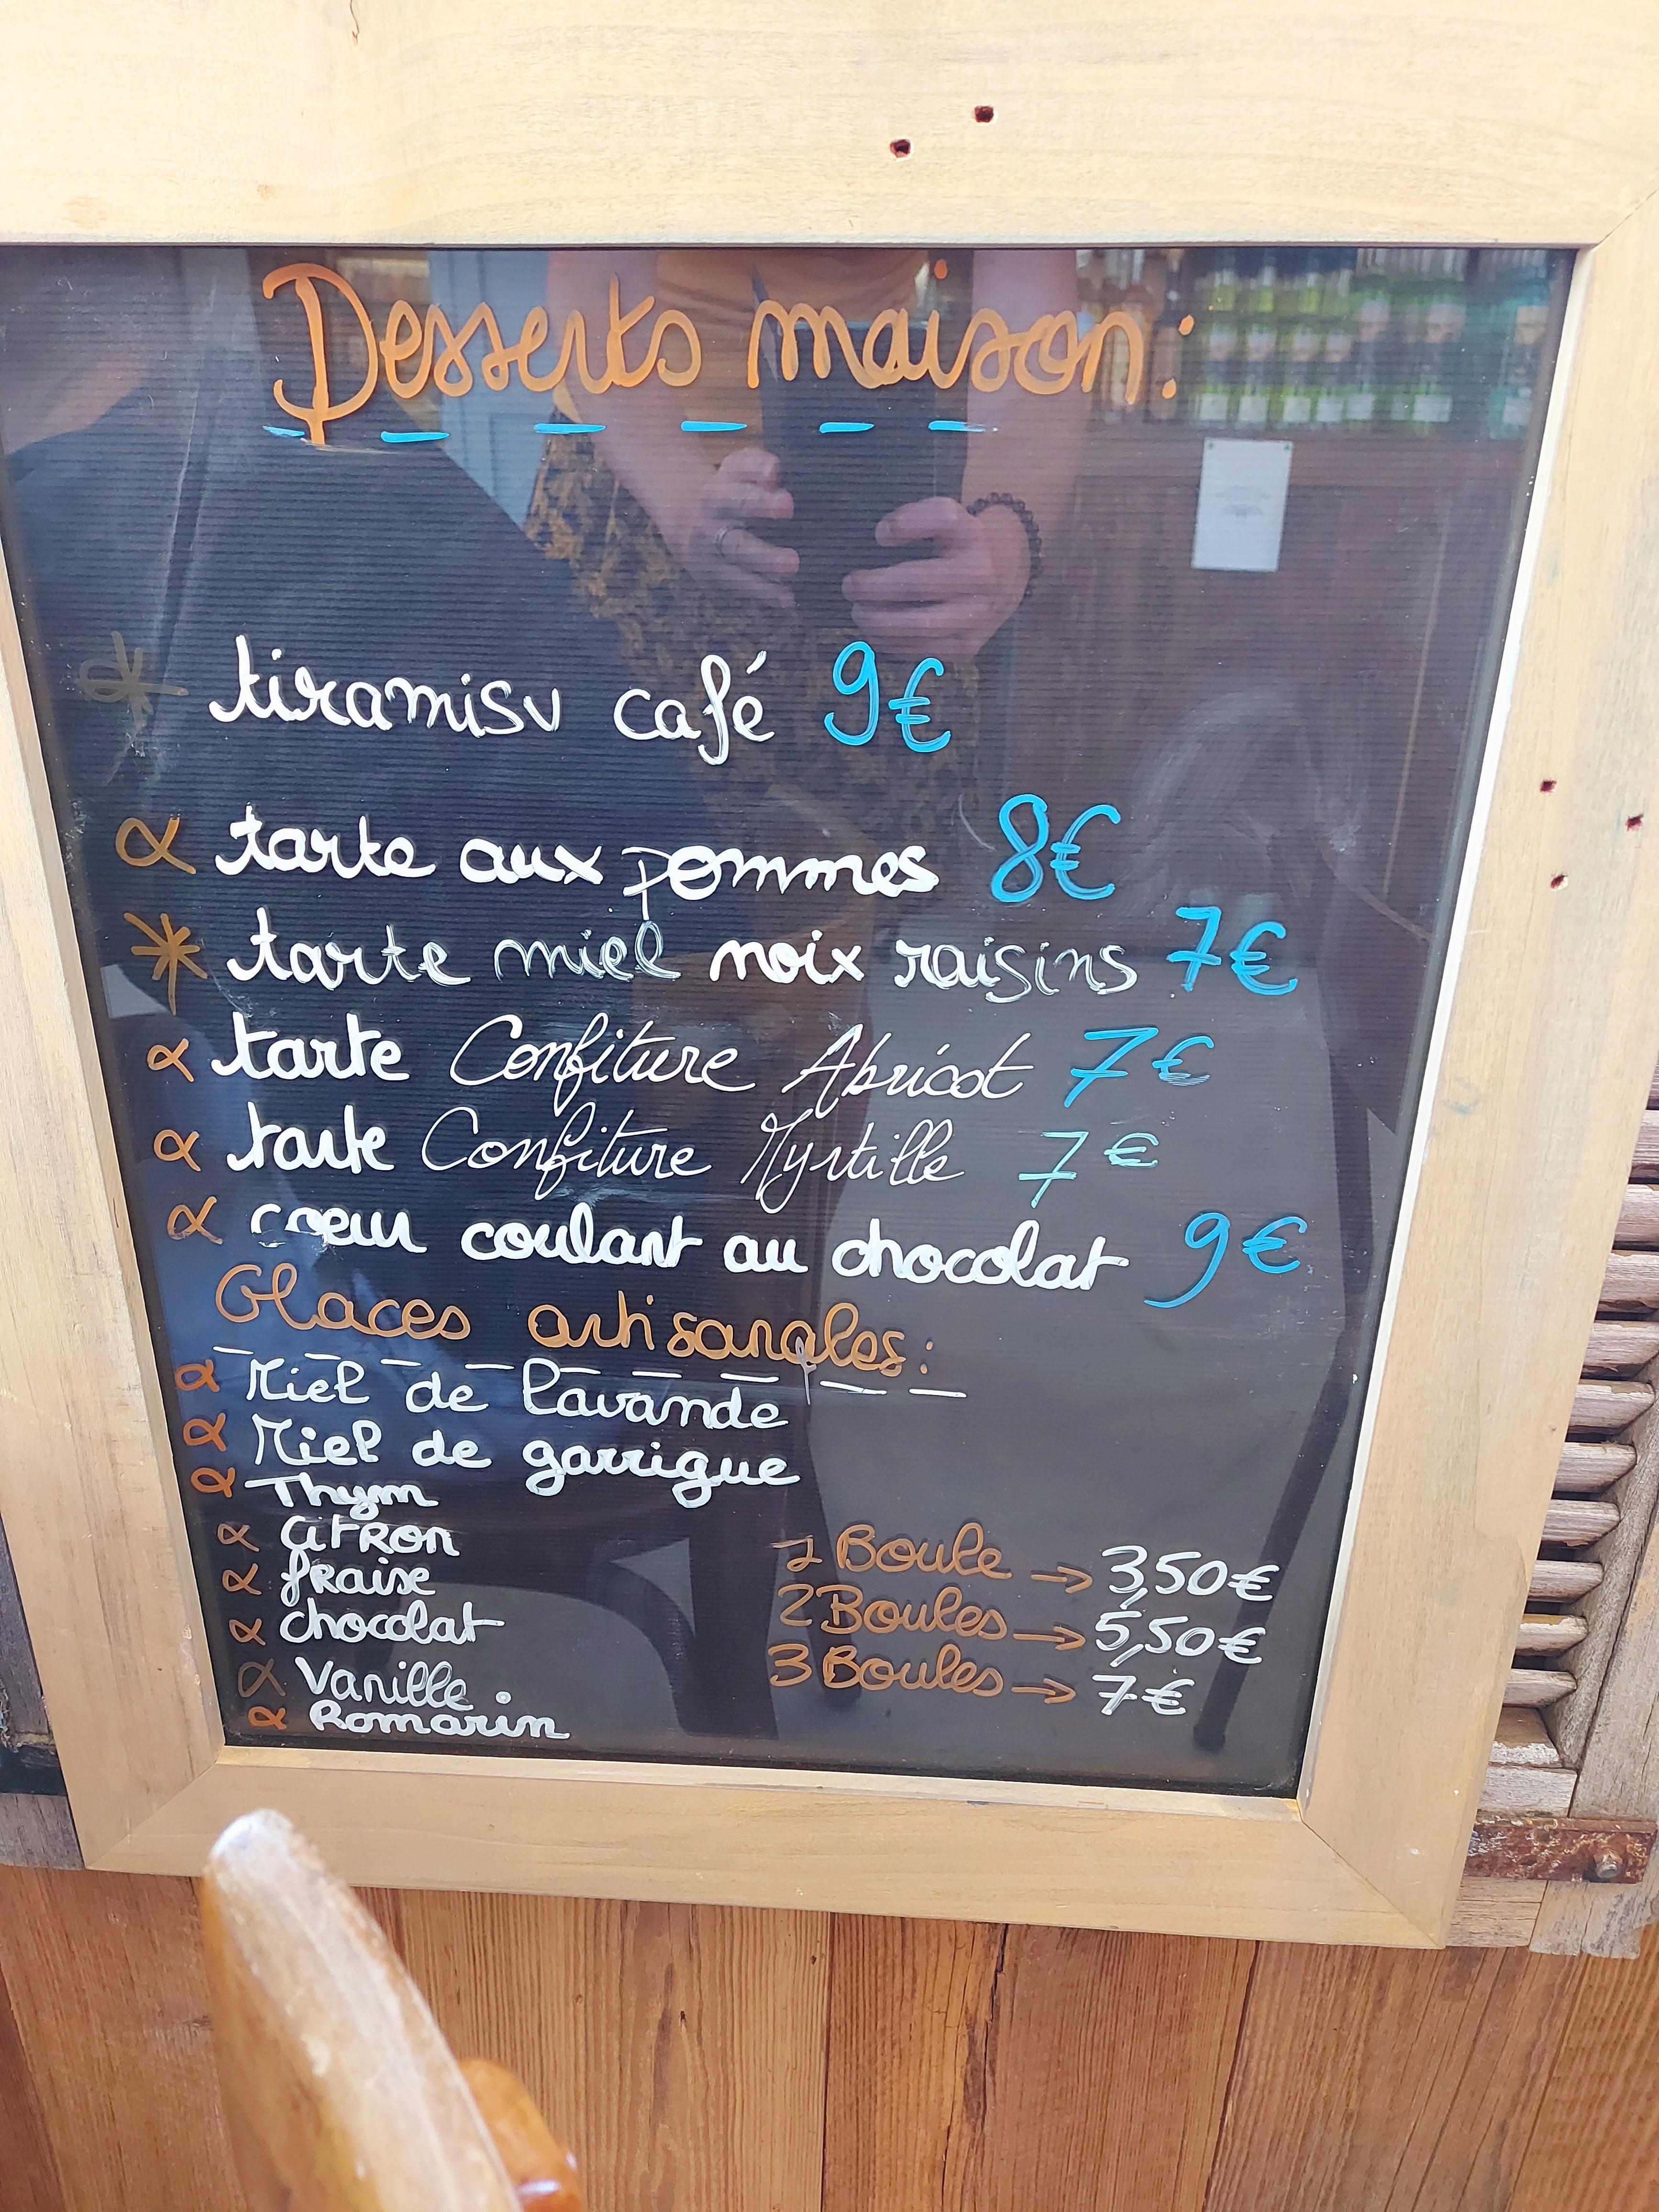 Desserts maison :
* tiramisu café 9€
α tarte aux pommes 8€
* tarte miel noix raisins 7€
α tarte Confiture Abricot 7€
α tarte Confiture Myrtille 7€
α coeur coulant au chocolat 9€
Glaces artisanales :
α Miel de lavande
α Miel de garrigue
α Thym
α Citron
α fraise
α chocolat
α Vanille
α Romarin
1 Boule → 3,50€
2 Boules → 5,50€
3 Boules → 7€